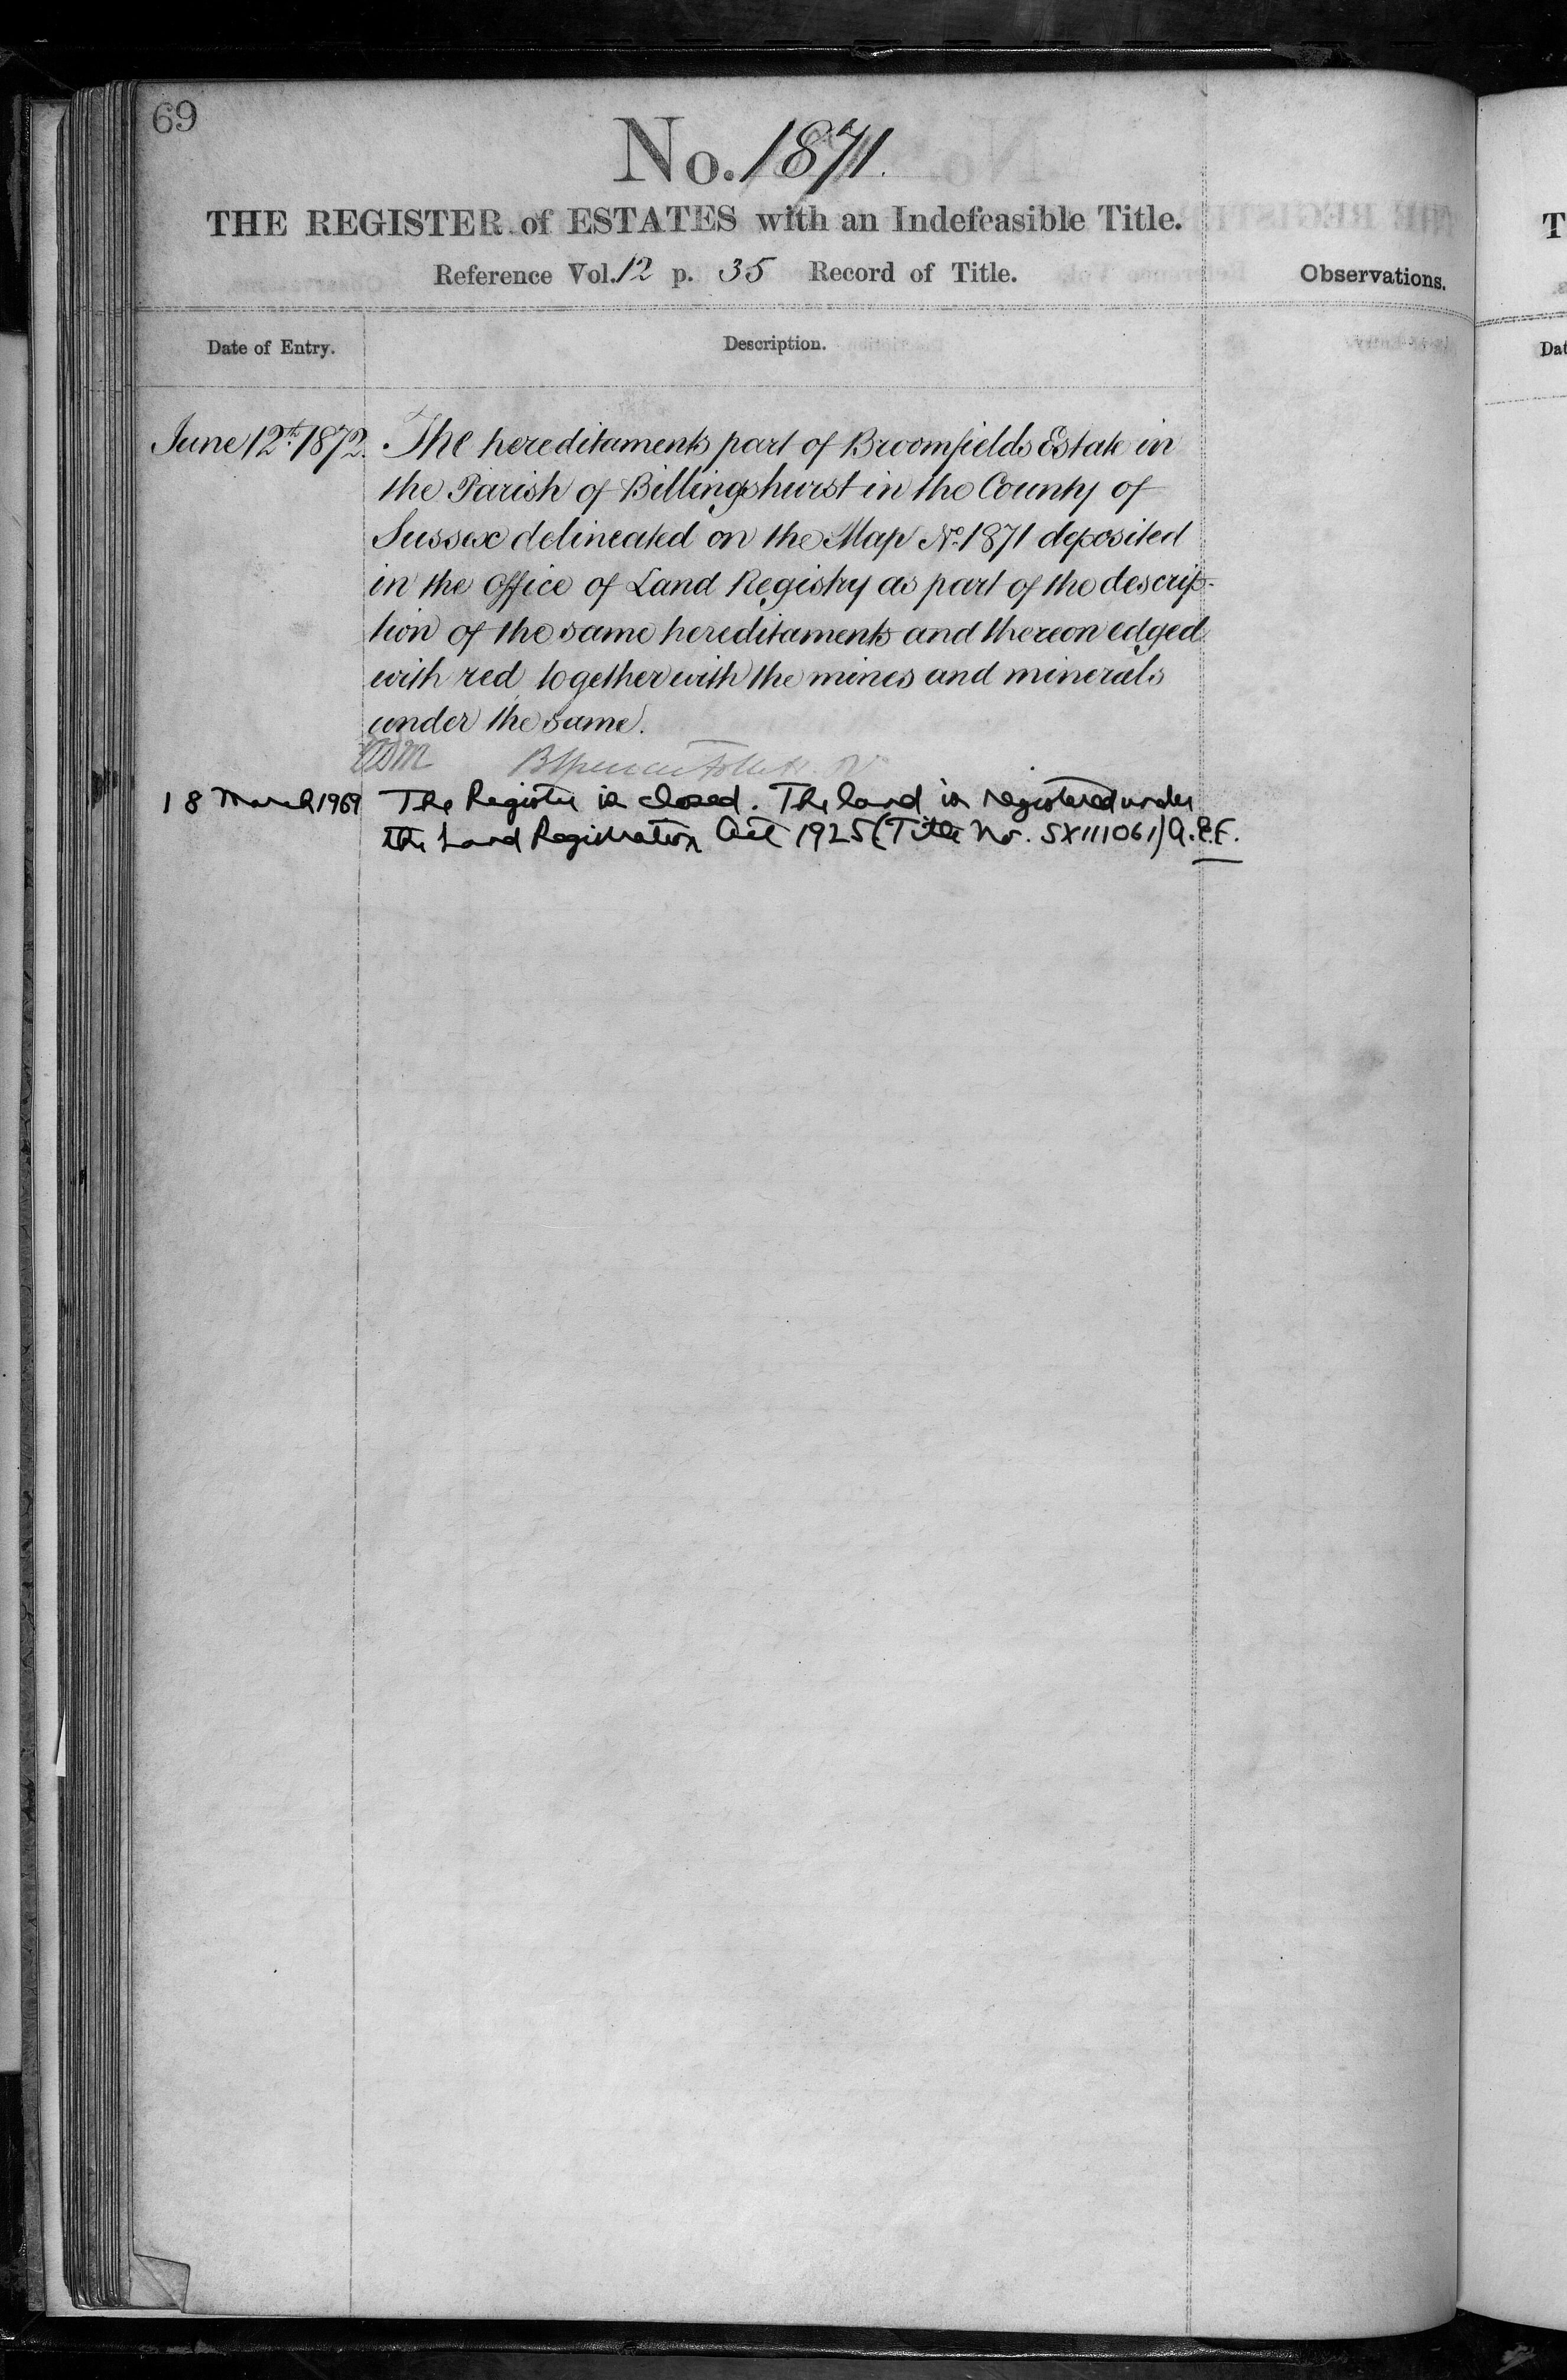 69
No. 1871.
THE REGISTER of ESTATES with an Indefeasible Title.
Reference Vol. 12 p. 35 Record of Title.
Observations.
Date of Entry.
Description.
June 12th 1872. The hereditaments part of Broomfields Estate in
the Parish of Billingshurst in the County of
Sussex delineated on the Map No. 1871 deposited
in the office of Land Registry as part of the descrip-
tion of the same hereditaments and thereon edged
with red together with the mines and minerals
under the same.
18 March 1969 The Register is closed. The land is registered under
the Land Registration Act 1925 (Title No. SX111061) A.E.F.
T
Dat